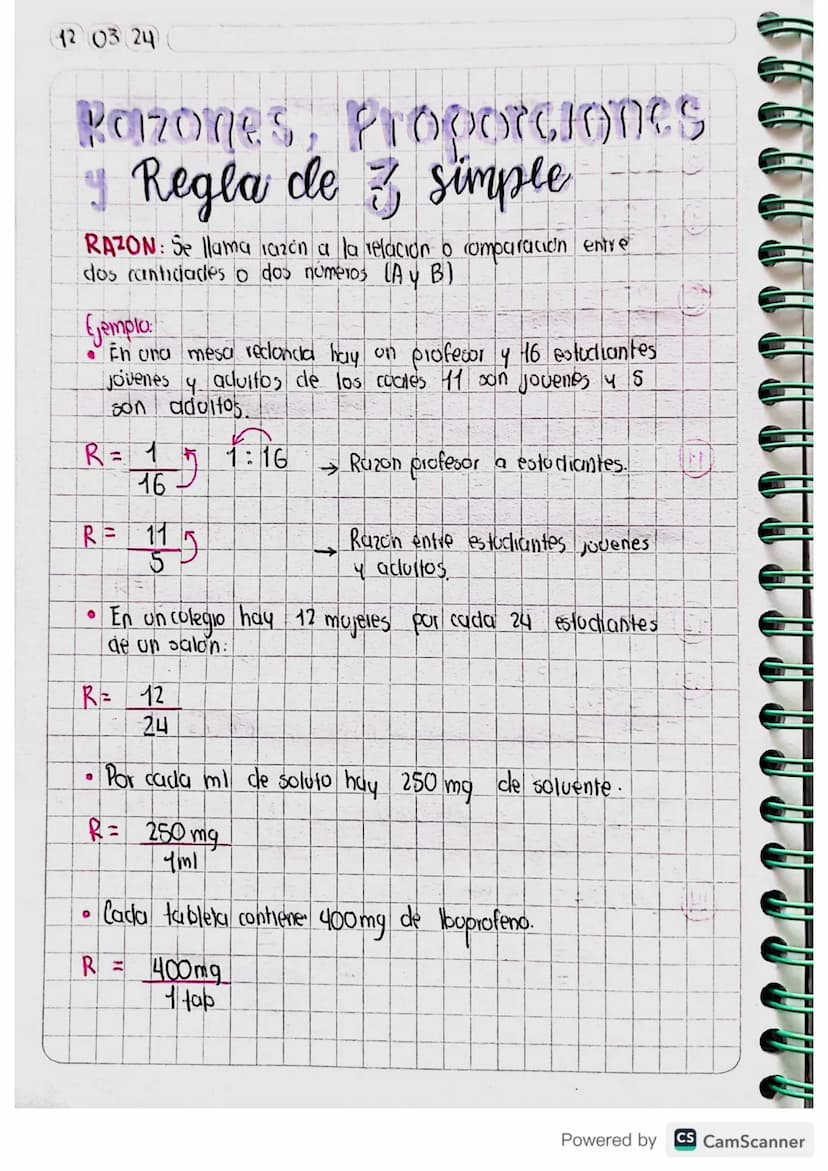 12 03 24
Razones, Proporciones
y Regla de 3 simple
RAZON: Se llama razón a la relación o comparación entre
dos cantidades o dos números (A y B)
Ejemplo:
• En una mesa redonda hay un profesor y 16 estudiantes
jóvenes y adultos de los cuales 11 son jovenes y 5
son adultos.
R = 1/16 1:16 → Razon profesor a estudiantes.
R = 11/5 → Razón entre estudiantes jovenes
y adultos.
• En un colegio hay 12 mujeres por cada 24 estudiantes
de un salón:
R = 12/24
• Por cada ml de soluto hay 250 mg de solvente.
R = 250 mg/1ml
• Cada tableta contiene 400mg de Ibuprofeno.
R = 400mg/1 tab
Powered by CS CamScanner